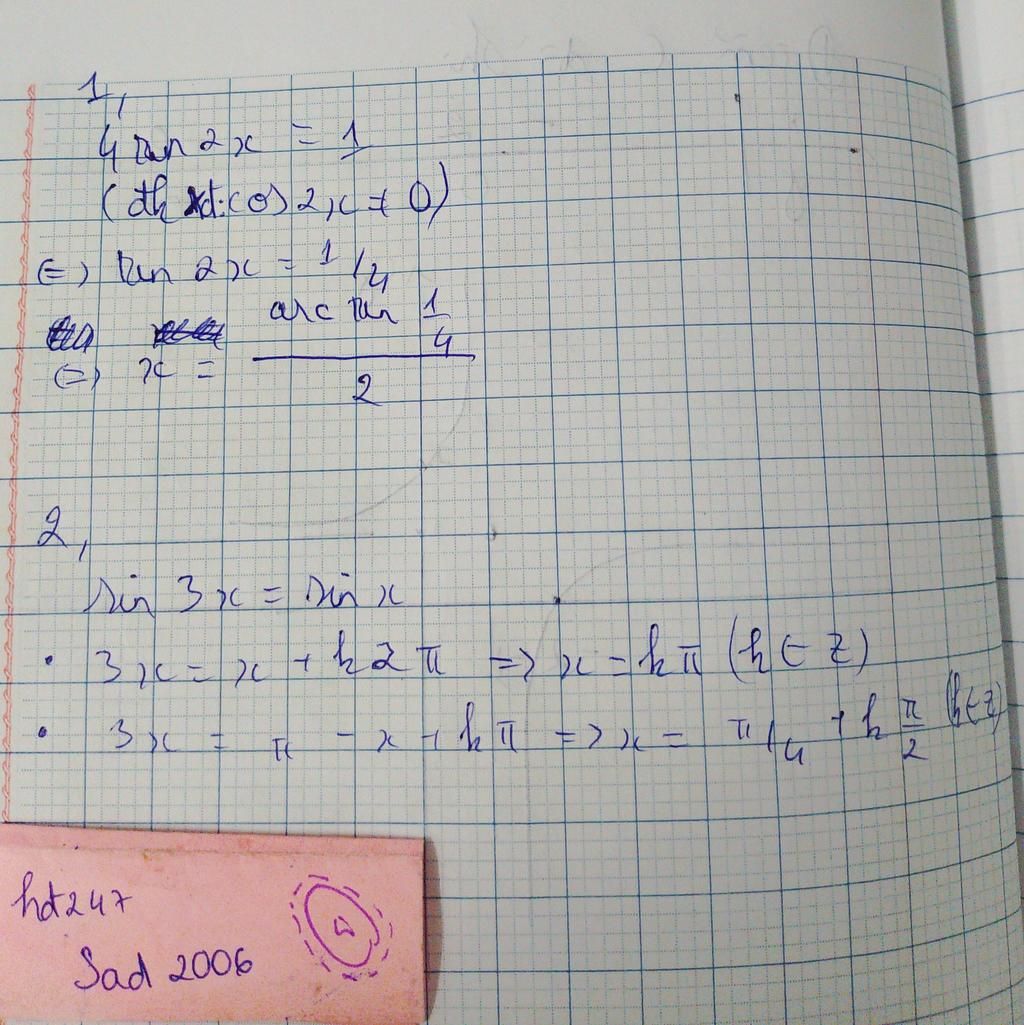 1,
4 tan 2x = 1
(đk xđ: cos 2x ≠ 0)
⇔ tan 2x = 1/4
⇔ x = (arc tan 1/4)/2
2,
sin 3x = sin x
• 3x = x + k2π => x = kπ (k ∈ Z)
• 3x = π - x + kπ => x = π/4 + k π/2 (k ∈ Z)
hdt247
Sad 2006